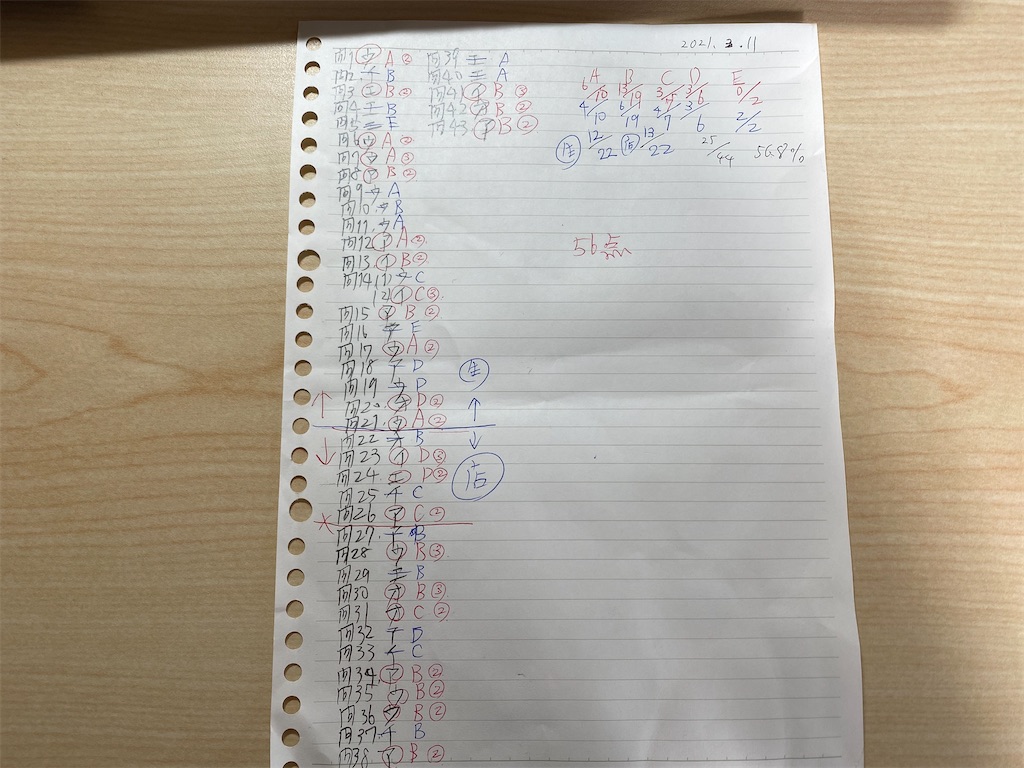 2021.3.11
問1 ウ A ②
問2 イ B
問3 エ B ②
問4 エ B
問5 エ E
問6 ウ A ②
問7 ウ A ③
問8 ア B ②
問9 ウ A
問10 ウ B
問11 ウ A
問12 ア A ②
問13 イ B ②
問14 (1) ウ C
(2) イ C ③
問15 ア B ②
問16 E
問17 ウ A ②
問18 イ D
問19 ウ D
問20 D ②
問21 ウ A ②
問22 B
問23 イ D ③
問24 エ D ②
問25 イ C
問26 ア C ②
問27 イ B
問28 ウ B ③
問29 エ B
問30 B ③
問31 C ②
問32 D
問33 イ C
問34 ア B ②
問35 ウ B ②
問36 ウ B ②
問37 イ B
問38 B ②
問39 エ A
問40 エ A
問41 イ B ③
問42 B ②
問43 ア B ②
A B C D E
6/10 13/19 3/7 3/6 0/2
4/10 6/19 4/7 3/6 2/2
12/22 13/22 25/44 56.8%
56点
生
店